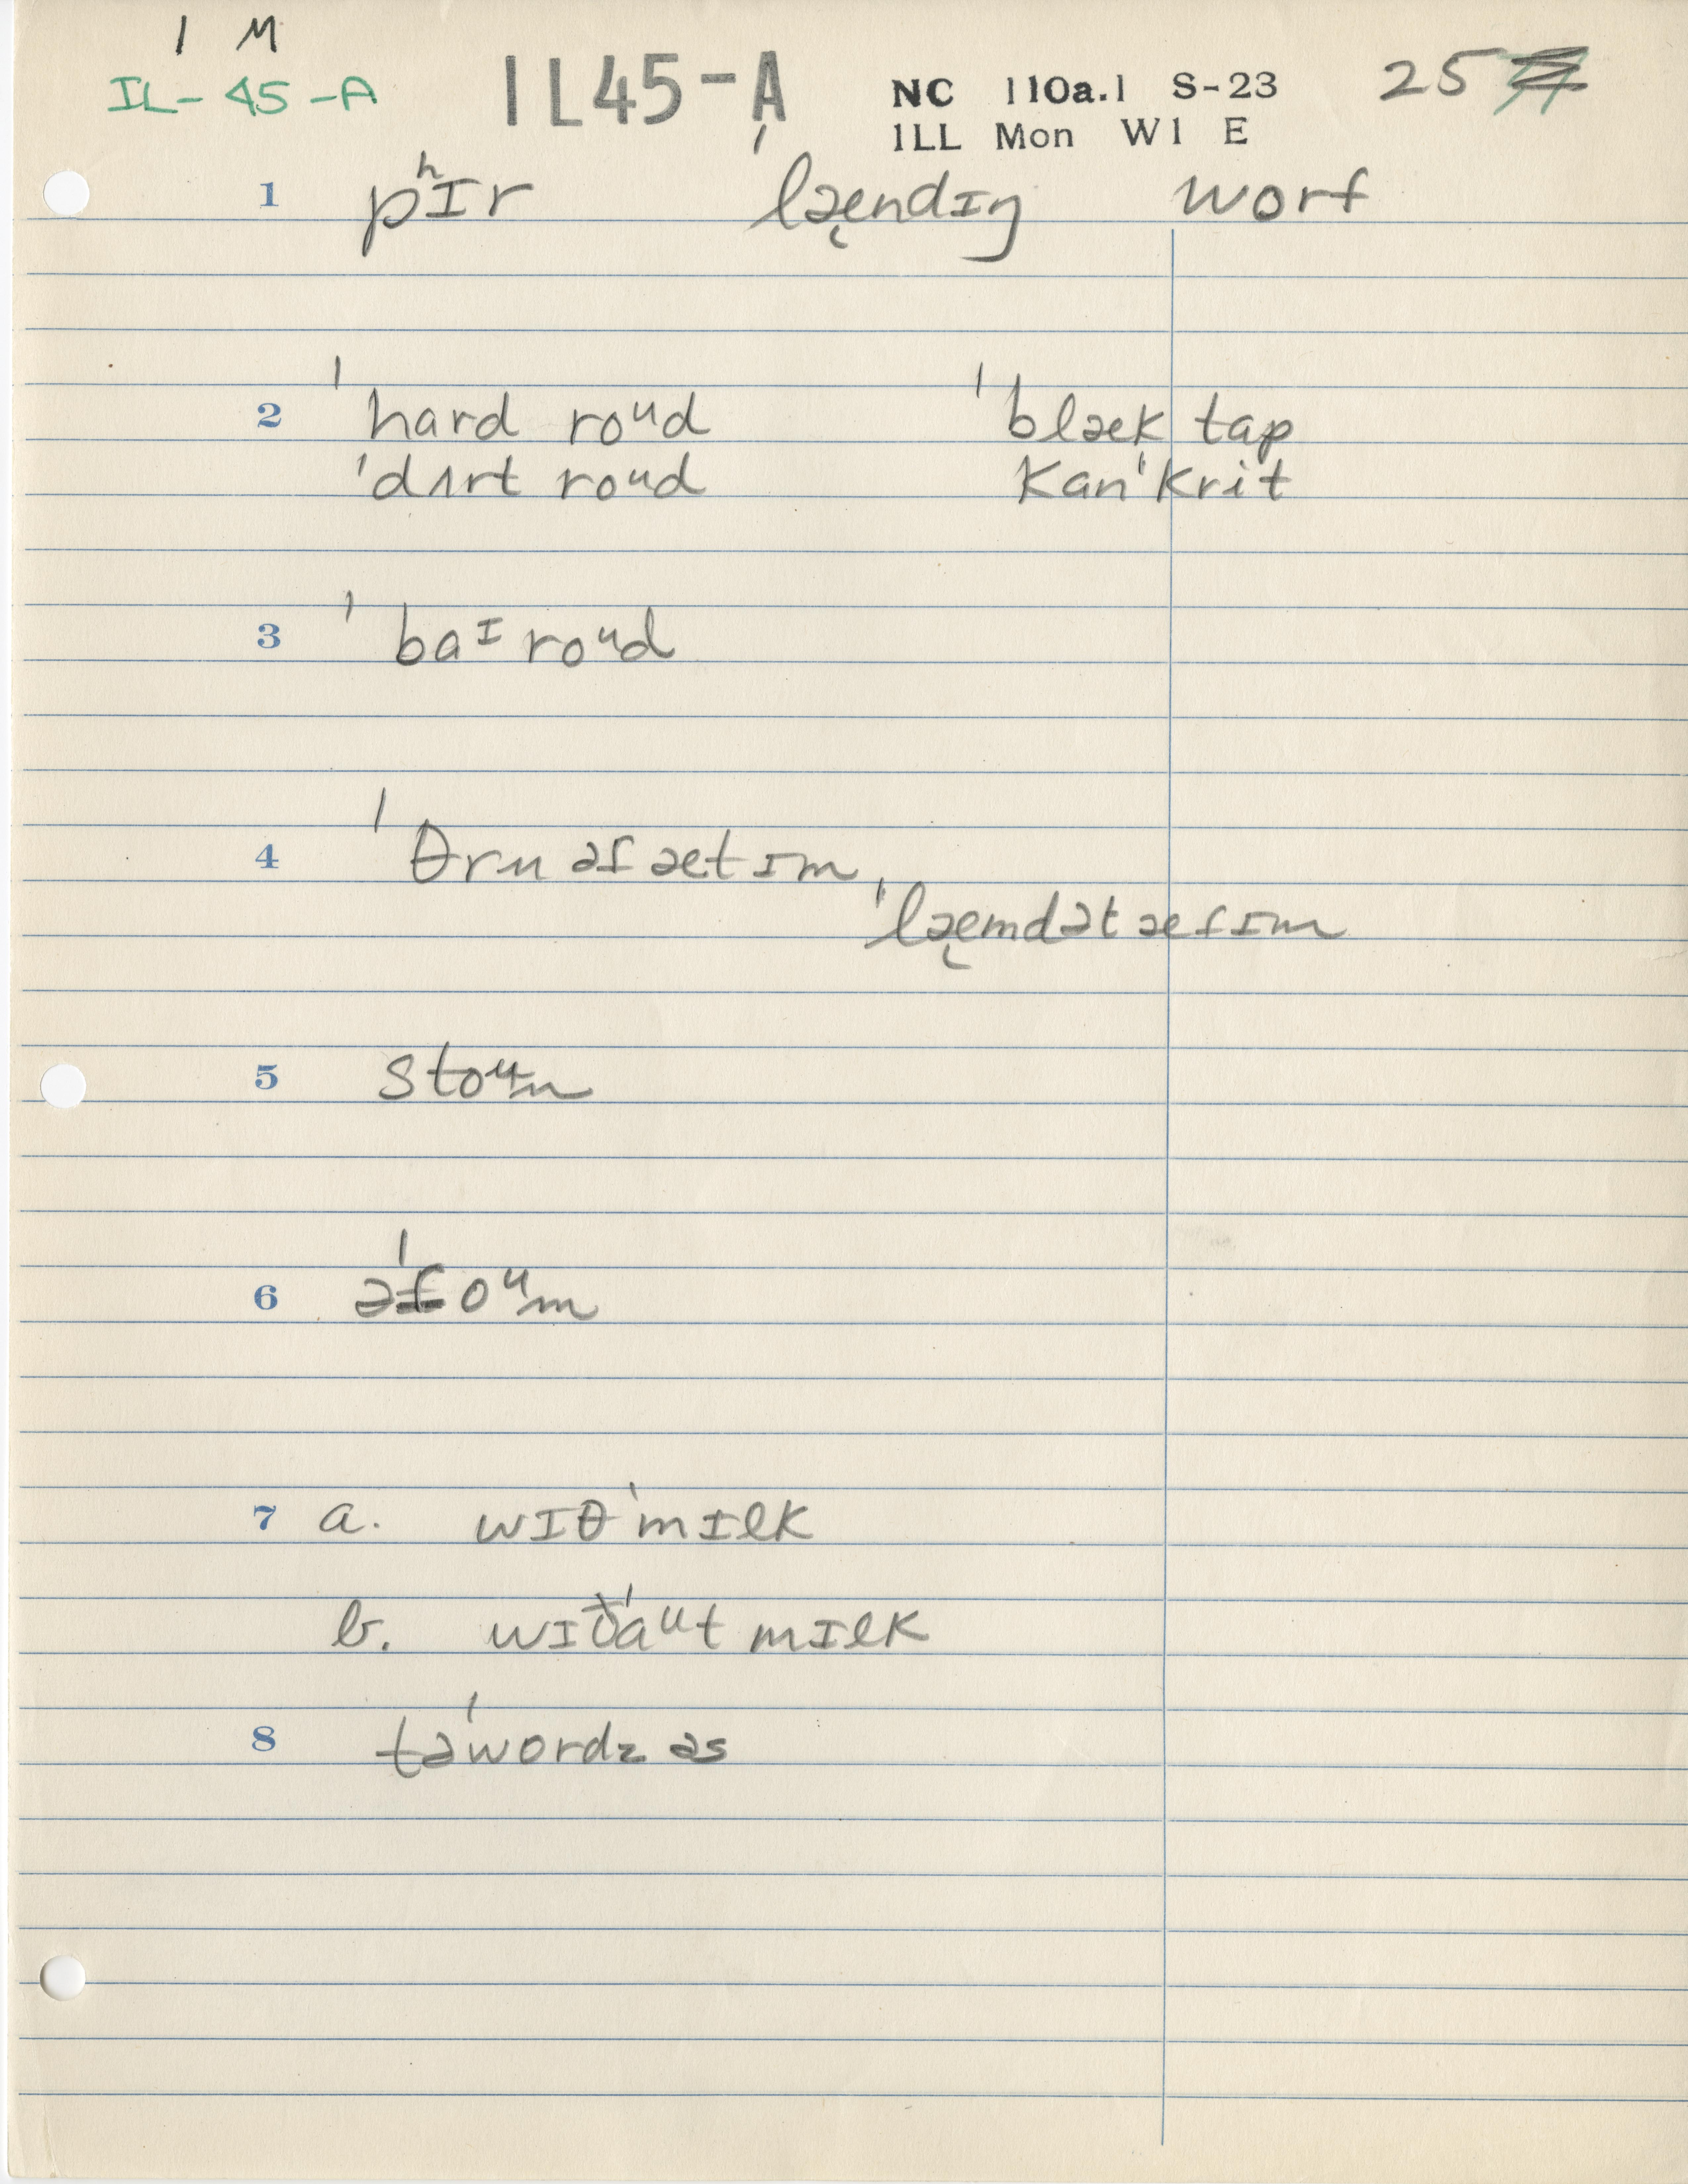 1 M
IL-45-A IL45-A NC 110a.1 S-23 25
ILL Mon W1 E
1 pʰɪr ˈlæ̨ndɪŋ worf
2 ˈhard roᵘd ˈblæk tap
ˈdʌrt roᵘd kanˈkrit
3 ˈbaᶦroᵘd
4 ˈθru əf æt ɪm,
ˈlæ̨mdət æf ɪm
5 stoᵘn
6 əˈfoᵘm
7 a. wɪθˈmɪlk
b. wɪðˈaᵘt mɪlk
8 təˈwordz əs